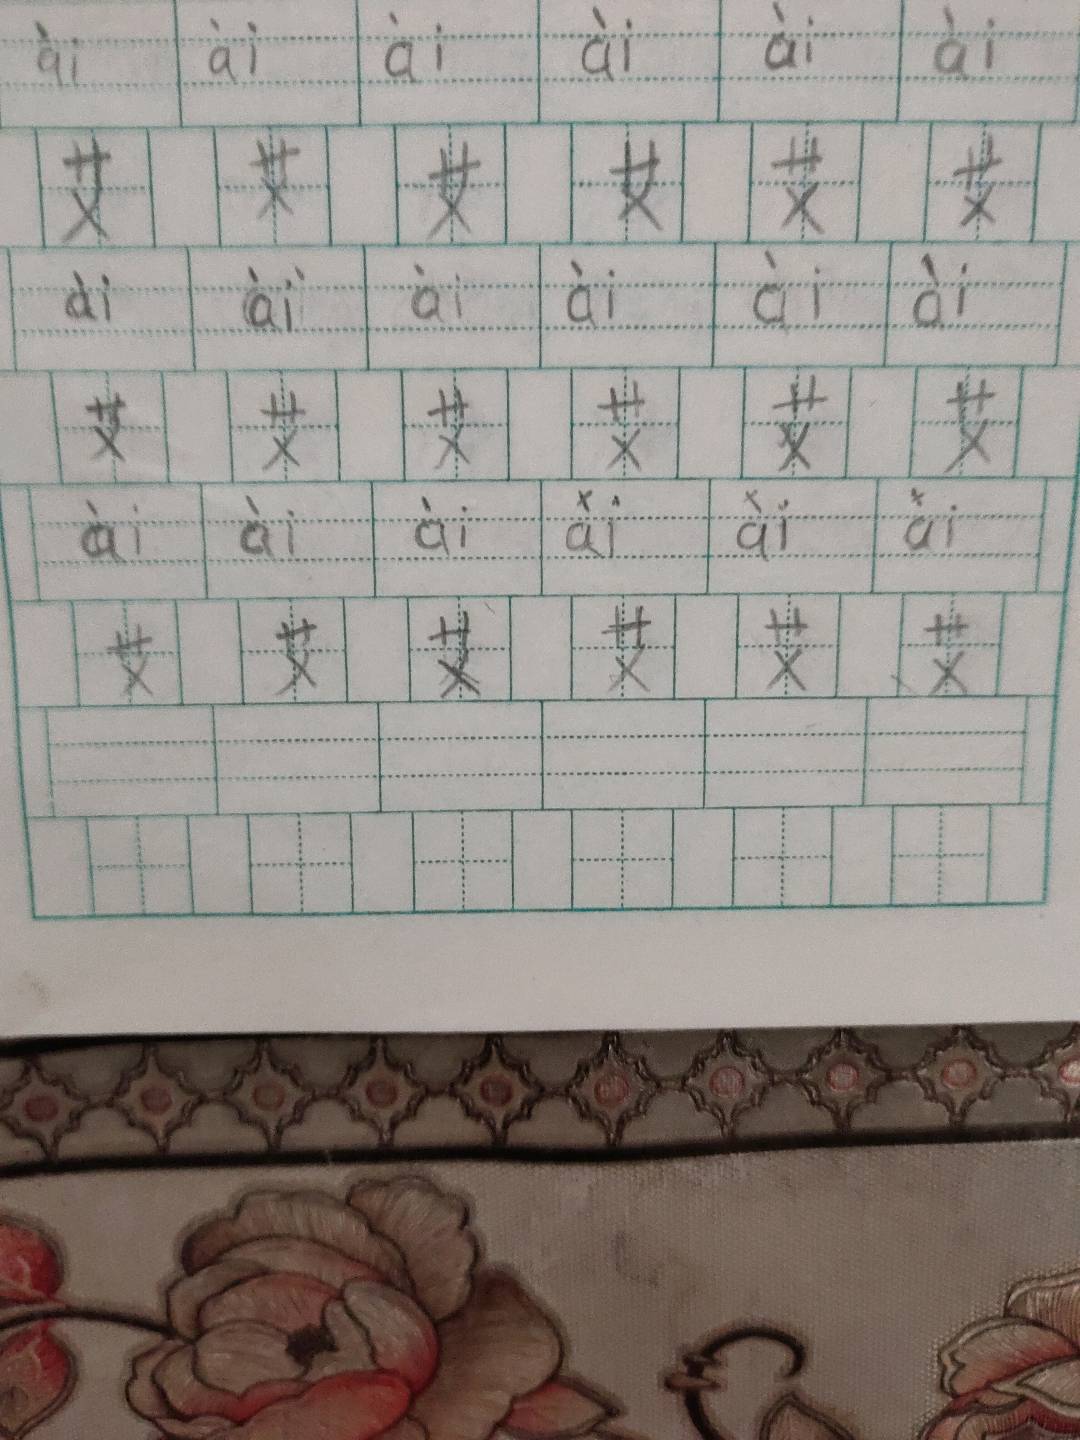 ài ài ài ài ài ài
艾 艾 艾 艾 艾 艾
ài ài ài ài ài ài
艾 艾 艾 艾 艾 艾
ài ài ài ài ài ài
艾 艾 艾 艾 艾 艾